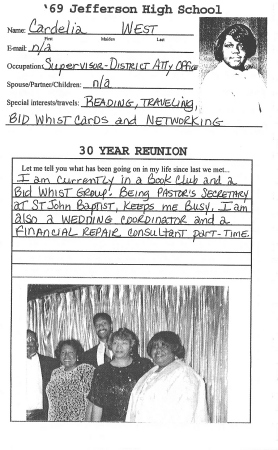 '69 Jefferson High School
Name: Cardelia WEST
First Maiden Last
E-mail: n/a
Occupation: Supervisor-District Atty Office
Spouse/Partner/Children: n/a
Special interests/travels: READING, TRAVELING,
BID WHIST CARDS AND NETWORKING
30 YEAR REUNION
Let me tell you what has been going on in my life since last we met...
I am currently in a Book Club and a
Bid Whist Group. Being Pastor's Secretary
at St John Baptist, keeps me busy. I am
also a Wedding Coordinator and a
Financial Repair consultant part-time.